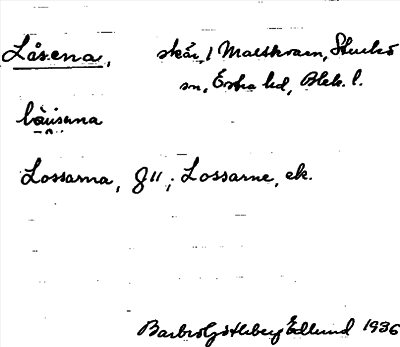 Låsena, skär, / Malkvarn, Sturkö
sn, Östra hd, Blek. l.
låusena
Lossarna, G11; Lossarne, ek.
Barbro Götheberg Edlund 1936